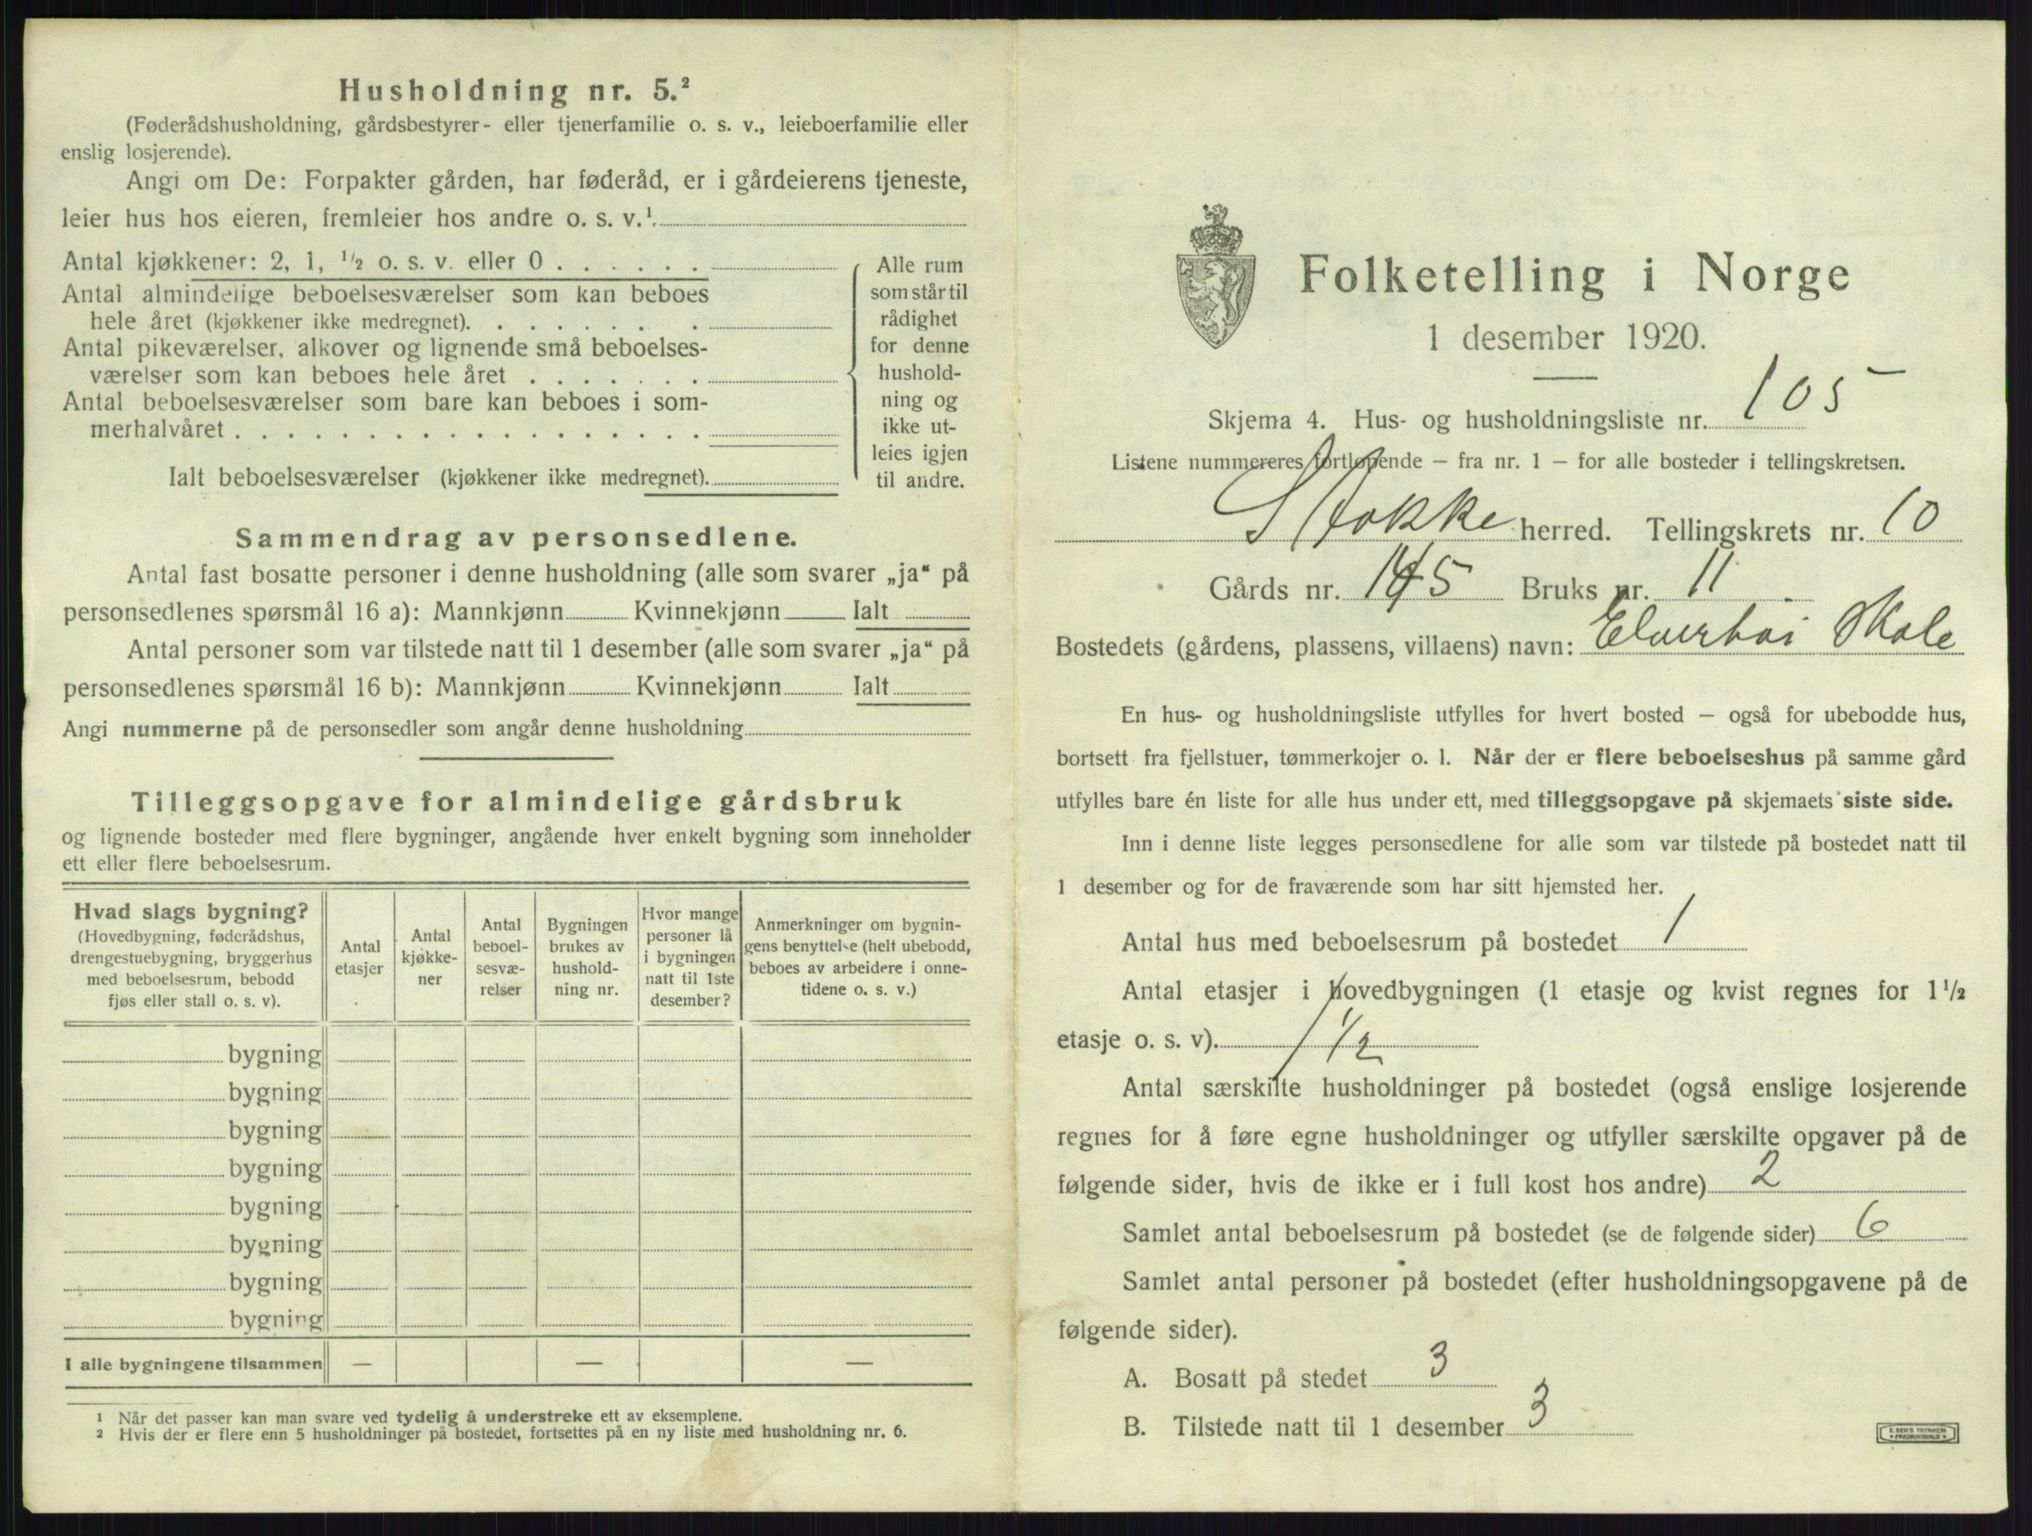 Husholdning nr. 5.²
(Føderådshusholdning, gårdsbestyrer- eller tjenerfamilie o. s. v., leieboerfamilie eller
enslig losjerende).
Angi om De: Forpakter gården, har føderåd, er i gårdeierens tjeneste,
leier hus hos eieren, fremleier hos andre o. s. v.¹
Antal kjøkkener: 2, 1, ¹/₂ o. s. v. eller 0 . . . . . .
Antal almindelige beboelsesværelser som kan beboes
hele året (kjøkkener ikke medregnet). . . . . . . .
Antal pikeværelser, alkover og lignende små beboelses-
værelser som kan beboes hele året . . . . . . .
Antal beboelsesværelser som bare kan beboes i som-
merhalvåret . . . . . . . . . . . . . . . . . .
Alle rum
som står til
rådighet
for denne
hushold-
ning og
ikke ut-
leies igjen
til andre.
Ialt beboelsesværelser (kjøkkener ikke medregnet).
Sammendrag av personsedlene.
Antal fast bosatte personer i denne husholdning (alle som svarer „ja“ på
personsedlenes spørsmål 16 a): Mannkjønn Kvinnekjønn Ialt
Antal personer som var tilstede natt til 1 desember (alle som svarer „ja“ på
personsedlenes spørsmål 16 b): Mannkjønn Kvinnekjønn Ialt
Angi nummerne på de personsedler som angår denne husholdning
Tilleggsopgave for almindelige gårdsbruk
og lignende bosteder med flere bygninger, angående hver enkelt bygning som inneholder
ett eller flere beboelsesrum.
Hvad slags bygning?
(Hovedbygning, føderådshus,
drengestuebygning, bryggerhus
med beboelsesrum, bebodd
fjøs eller stall o. s. v).
Antal
etasjer
Antal
kjøkke-
ner
Antal
beboel-
sesvæ-
relser
Bygningen
brukes av
hushold-
ning nr.
Hvor mange
personer lå
i bygningen
natt til 1ste
desember?
Anmerkninger om bygnin-
gens benyttelse (helt ubebodd,
beboes av arbeidere i onne-
tidene o. s. v.)
bygning
bygning
bygning
bygning
bygning
bygning
bygning
bygning
I alle bygningene tilsammen — — —
¹ Når det passer kan man svare ved tydelig å understreke ett av eksemplene.
² Hvis der er flere enn 5 husholdninger på bostedet, fortsettes på en ny liste med husholdning nr. 6.
Folketelling i Norge
1 desember 1920.
Skjema 4. Hus- og husholdningsliste nr. 105
Listene nummereres fortløpende – fra nr. 1 – for alle bosteder i tellingskretsen.
Stokke herred. Tellingskrets nr. 10
Gårds nr. 145 Bruks nr. 11
Bostedets (gårdens, plassens, villaens) navn: Elverhøi Skole
En hus- og husholdningsliste utfylles for hvert bosted – også for ubebodde hus,
bortsett fra fjellstuer, tømmerkojer o. l. Når der er flere beboelseshus på samme gård
utfylles bare én liste for alle hus under ett, med tilleggsopgave på skjemaets siste side.
Inn i denne liste legges personsedlene for alle som var tilstede på bostedet natt til
1 desember og for de fraværende som har sitt hjemsted her.
Antal hus med beboelsesrum på bostedet 1
Antal etasjer i hovedbygningen (1 etasje og kvist regnes for 1¹/₂
etasje o. s. v). 1 1/2
Antal særskilte husholdninger på bostedet (også enslige losjerende
regnes for å føre egne husholdninger og utfyller særskilte opgaver på de
følgende sider, hvis de ikke er i full kost hos andre) 2
Samlet antal beboelsesrum på bostedet (se de følgende sider) 6
Samlet antal personer på bostedet (efter husholdningsopgavene på de
følgende sider).
A. Bosatt på stedet 3
B. Tilstede natt til 1 desember 3